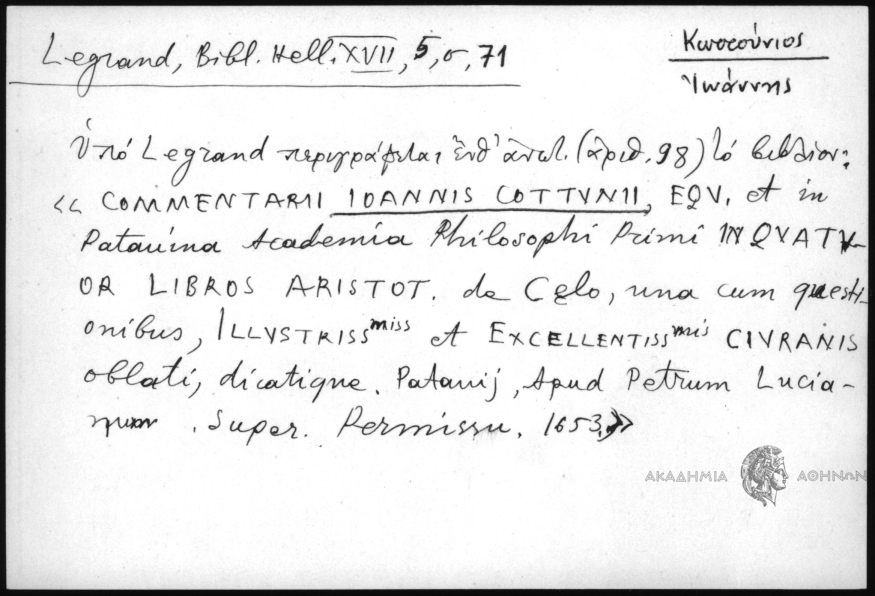 Legrand, Bibl. Hell. XVII, 5, σ, 71
Κωττούνιος
Ἰωάννης
Ὑπό Legrand περιγράφεται ἐνθ' ἀνωτ. (ἀριθ. 98) τό βιβλίον:
<< COMMENTARII IOANNIS COTTVNII, EQV. et in
Patauina Academia Philosophi Primi IN QVATV-
OR LIBROS ARISTOT. de Cęlo, una cum questi-
onibus, ILLVSTRISSmiss et EXCELLENTISSmis CIVRANIS
oblati, dicatique. Patauij, Apud Petrum Lucia-
num. Super. Permissu. 1653.>>
ΑΚΑΔΗΜΙΑ ΑΘΗΝΩΝ